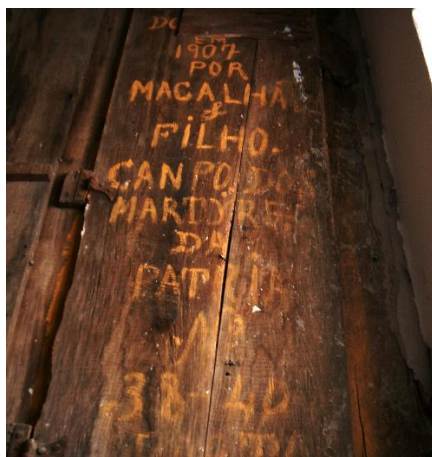 EM
1907
POR
MAGALHÃ
&
FILHO.
CANPO DOS
MARTYRES
DA
PATRIA
38-40